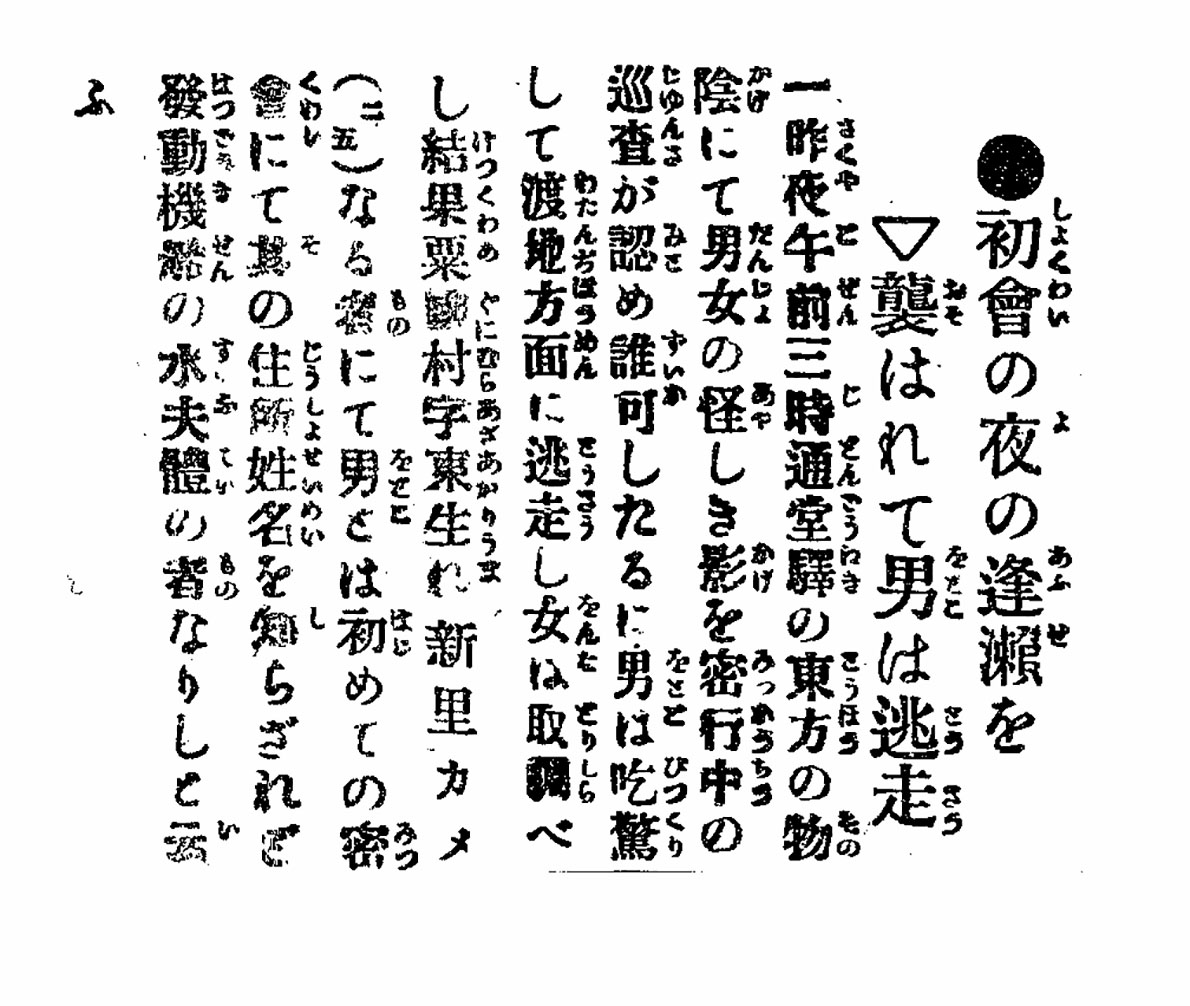 ●初會の夜の逢瀨を
▽襲はれて男は逃走
一昨夜午前三時通堂驛の東方の物
陰にて男女の怪しき影を密行中の
巡査が認め誰可したるに男は吃驚
して渡地方面に逃走し女は取調べ
し結果粟國村字東生れ新里カメ
(二五)なる者にて男とは初めての密
會にて其の住所姓名を知らざれど
發動機船の水夫體の者なりしと云
ふ